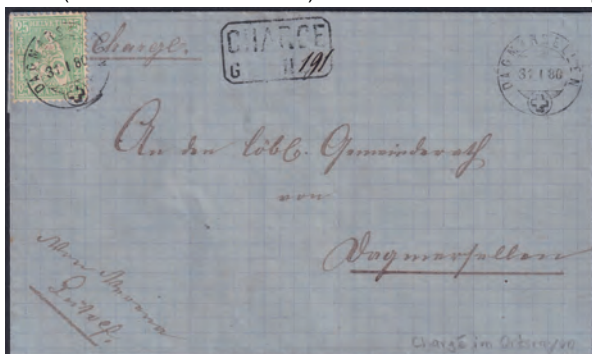 Chargé.
CHARGE
G II 191
DAGMERSELLEN
31 I 80
DAGMERSELLEN
31 I 80
An den löbl. Gemeinderath
von
Dagmersellen
Chargé im Ortsrayon